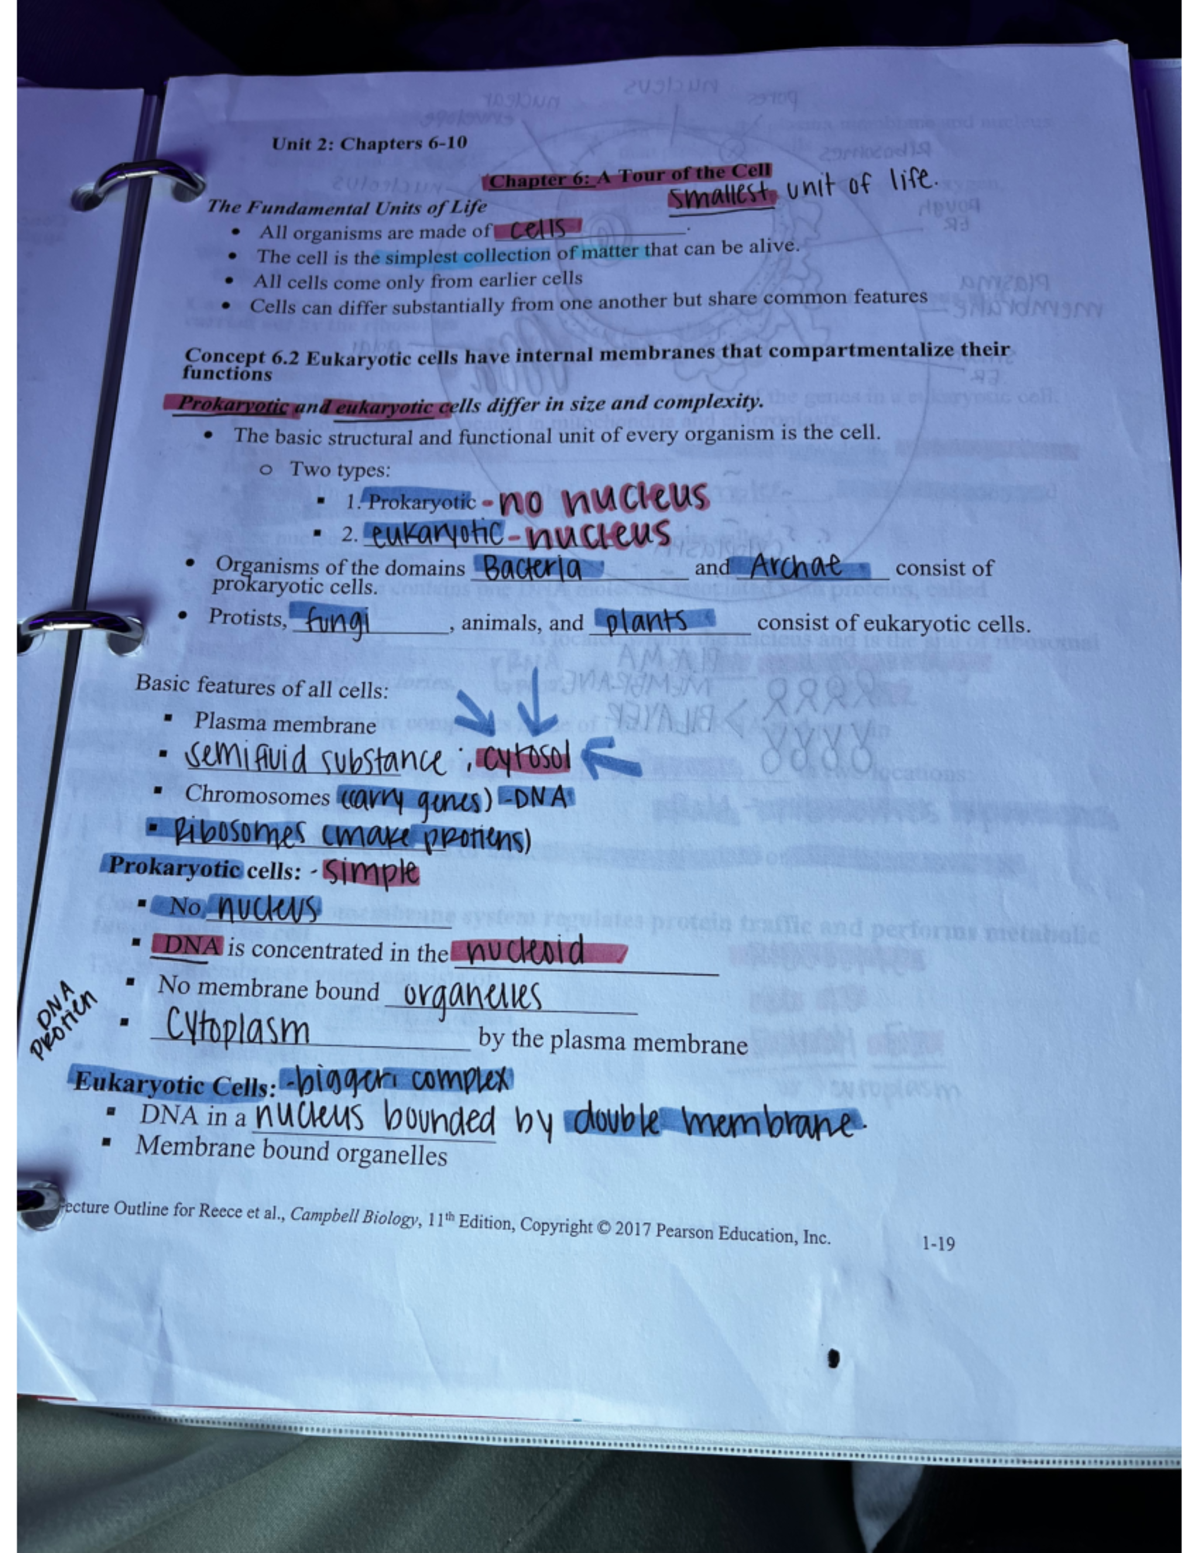 Unit 2: Chapters 6-10
Chapter 6: A Tour of the Cell
smallest unit of life.
The Fundamental Units of Life
• All organisms are made of cells.
• The cell is the simplest collection of matter that can be alive.
• All cells come only from earlier cells
• Cells can differ substantially from one another but share common features
Concept 6.2 Eukaryotic cells have internal membranes that compartmentalize their
functions
Prokaryotic and eukaryotic cells differ in size and complexity.
• The basic structural and functional unit of every organism is the cell.
o Two types:
▪ 1. Prokaryotic - no nucleus
▪ 2. eukaryotic - nucleus
• Organisms of the domains Bacteria and Archae consist of
prokaryotic cells.
• Protists, fungi, animals, and plants consist of eukaryotic cells.
Basic features of all cells:
▪ Plasma membrane
▪ semifluid substance ; cytosol
▪ Chromosomes (carry genes) -DNA
▪ Ribosomes (make protiens)
Prokaryotic cells: - simple
▪ No nucleus
▪ DNA is concentrated in the nucleoid
▪ No membrane bound organelles
DNA
protien
▪ Cytoplasm by the plasma membrane
Eukaryotic Cells: -bigger, complex
▪ DNA in a nucleus bounded by double membrane.
▪ Membrane bound organelles
ecture Outline for Reece et al., Campbell Biology, 11th Edition, Copyright © 2017 Pearson Education, Inc.
1-19